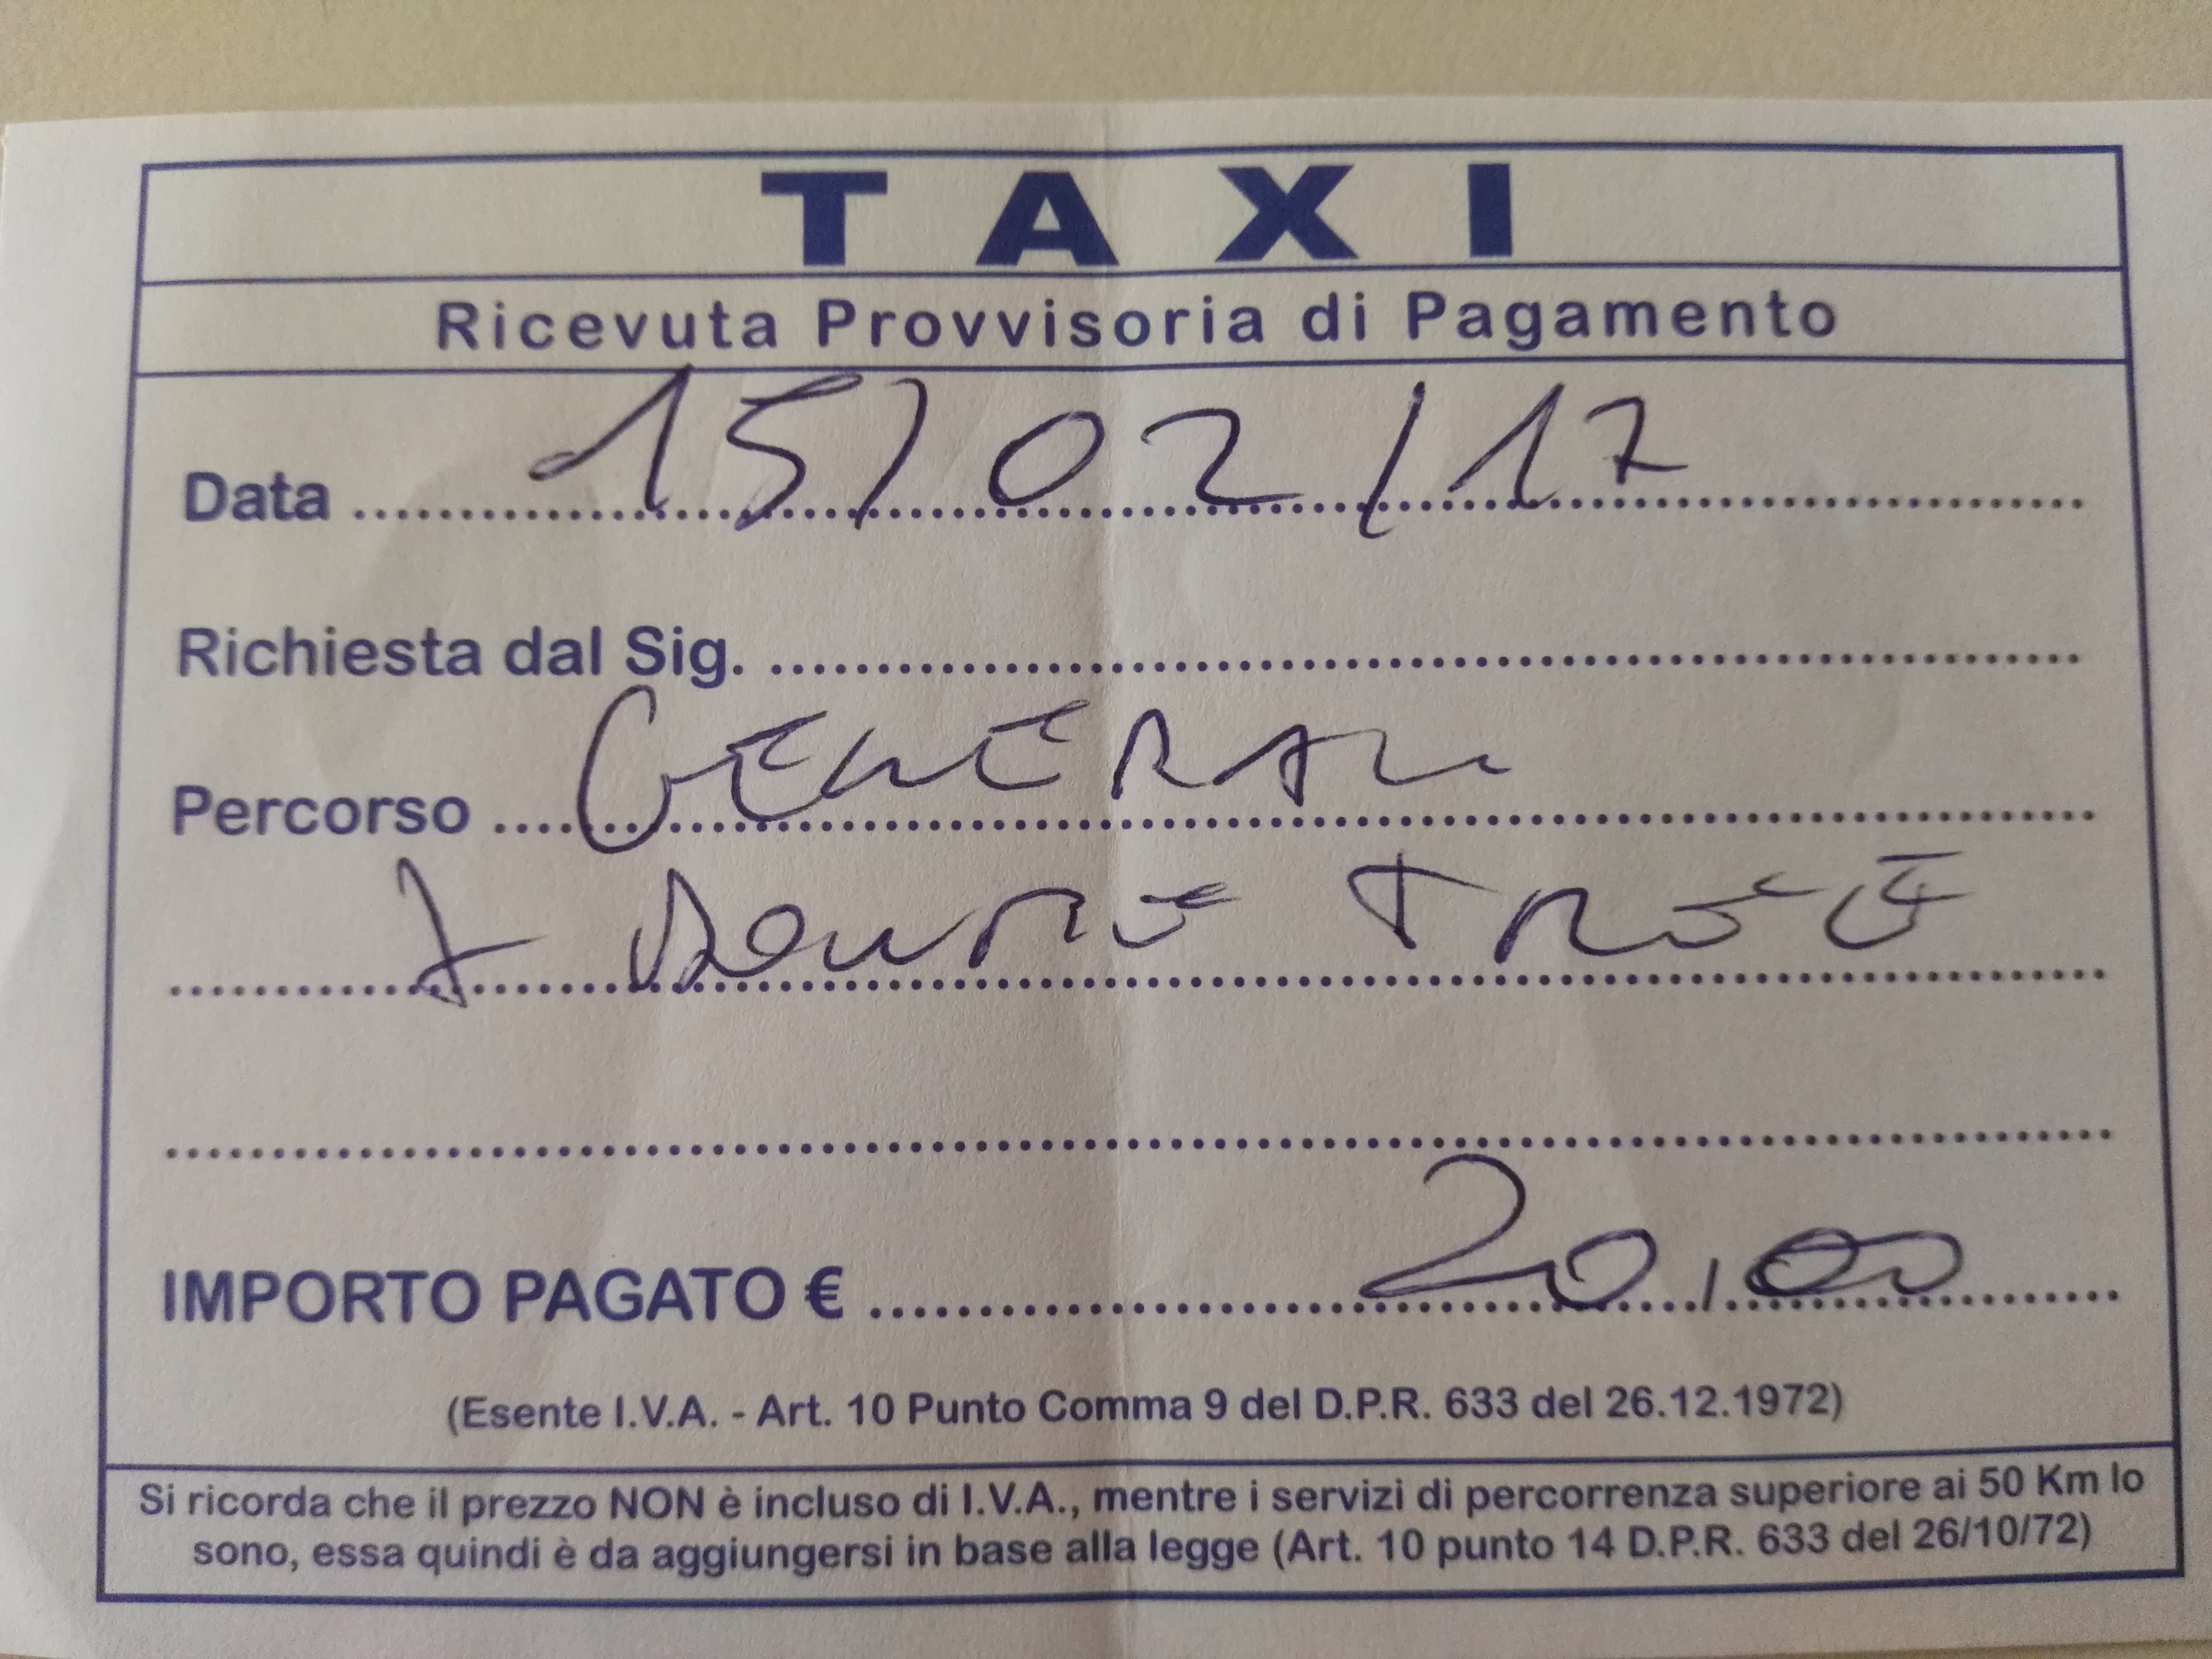 TAXI
Ricevuta Provvisoria di Pagamento
Data 15/02/17
Richiesta dal Sig.
Percorso GENERALI
IMPORTO PAGATO € 20,00
(Esente I.V.A. - Art. 10 Punto Comma 9 del D.P.R. 633 del 26.12.1972)
Si ricorda che il prezzo NON è incluso di I.V.A., mentre i servizi di percorrenza superiore ai 50 Km lo
sono, essa quindi è da aggiungersi in base alla legge (Art. 10 punto 14 D.P.R. 633 del 26/10/72)